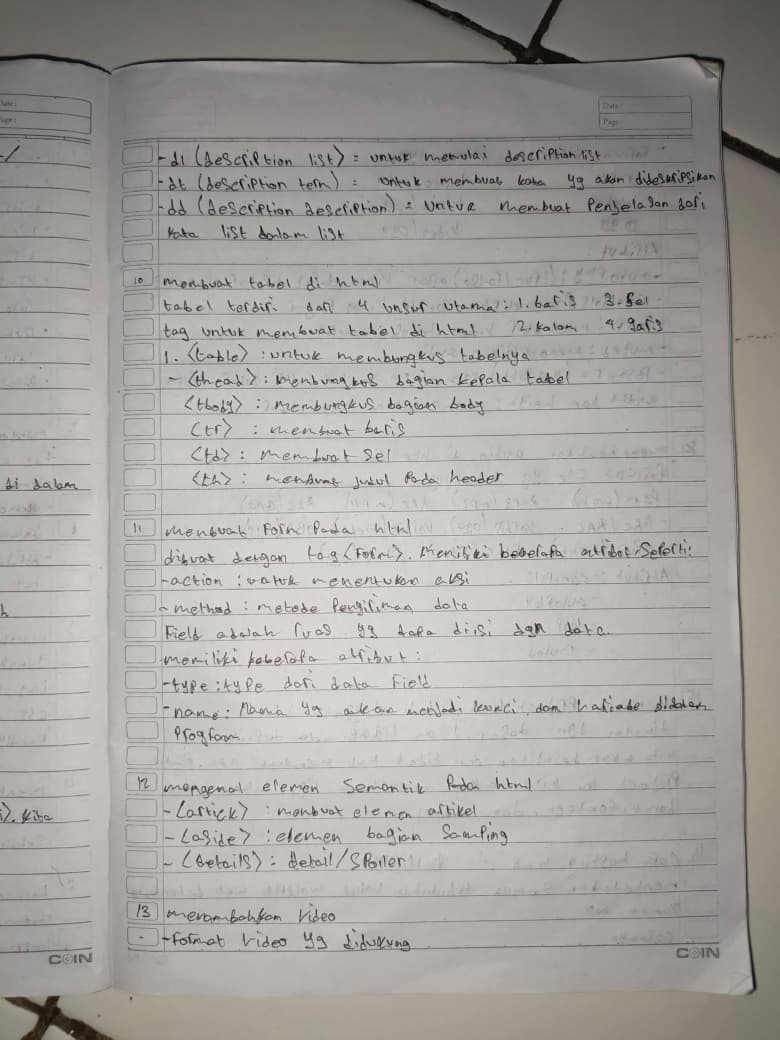 Date:
Page:
Date:
Page:
-dl (description list) = untuk memulai description list
-dt (description term) = untuk membuat kata yg akan dideskripsikan
-dd (description description) = untuk membuat Penjelasan dari
kata list dalam list
10 membuat tabel di html
tabel terdiri dari 4 unsur utama : 1. baris 3. Sel
tag untuk membuat tabel di html 2. kolom 4. garis
1. <table> : untuk membungkus tabelnya
- <thead> : membungkus bagian kepala tabel
<tbody> : membungkus bagian body
<tr> : membuat baris
<td> : membuat Sel
di dalam
<th> : membuat judul Pada header
11 membuat Form Pada html
dibuat dengan tag <Form>. Memiliki beberapa atribut Seperti:
-action : untuk menentukan aksi
- method : metode Pengiriman data
Field adalah ruas yg dapa diisi dgn data.
memiliki beberapa atribut :
-type : type dari data Field
-name : Nama yg akan menjadi kunci dan variabe didalam
Program
12 mengenal elemen Semantik Pada html
- <artick> : membuat elemen artikel
kita
- <aside> : elemen bagian Samping
- <details> : detail/SPoiler
13 menambahkan video
-format video yg didukung
COIN
COIN